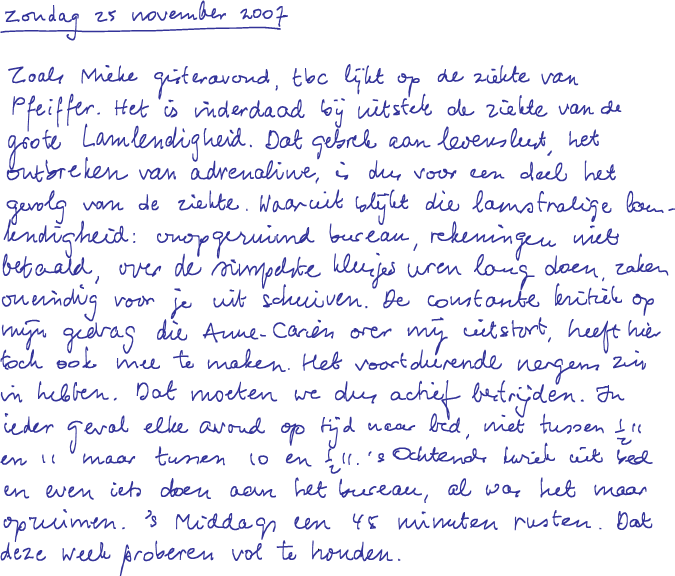 Zondag 25 november 2007
Zoals Mieke gisteravond, tbc lijkt op de ziekte van
Pfeiffer. Het is inderdaad bij uitstek de ziekte van de
grote Lamlendigheid. Dat gebrek aan levenslust, het
ontbreken van adrenaline, is dus voor een deel het
gevolg van de ziekte. Waaruit blijkt die lamstralige lam-
lendigheid: onopgeruimd bureau, rekeningen niet
betaald, over de simpelste klusjes uren lang doen, zaken
oneindig voor je uit schuiven. De constante kritiek op
mijn gedrag die Anne-Carien over mij uitstort, heeft hier
toch ook mee te maken. Het voortdurende nergens zin
in hebben. Dat moeten we dus actief bestrijden. In
ieder geval elke avond op tijd naar bed, niet tussen ½11
en 11 maar tussen 10 en ½11. 's Ochtends kwiek uit bed
en even iets doen aan het bureau, al was het maar
opruimen. 's Middags een 45 minuten rusten. Dat
deze week proberen vol te houden.